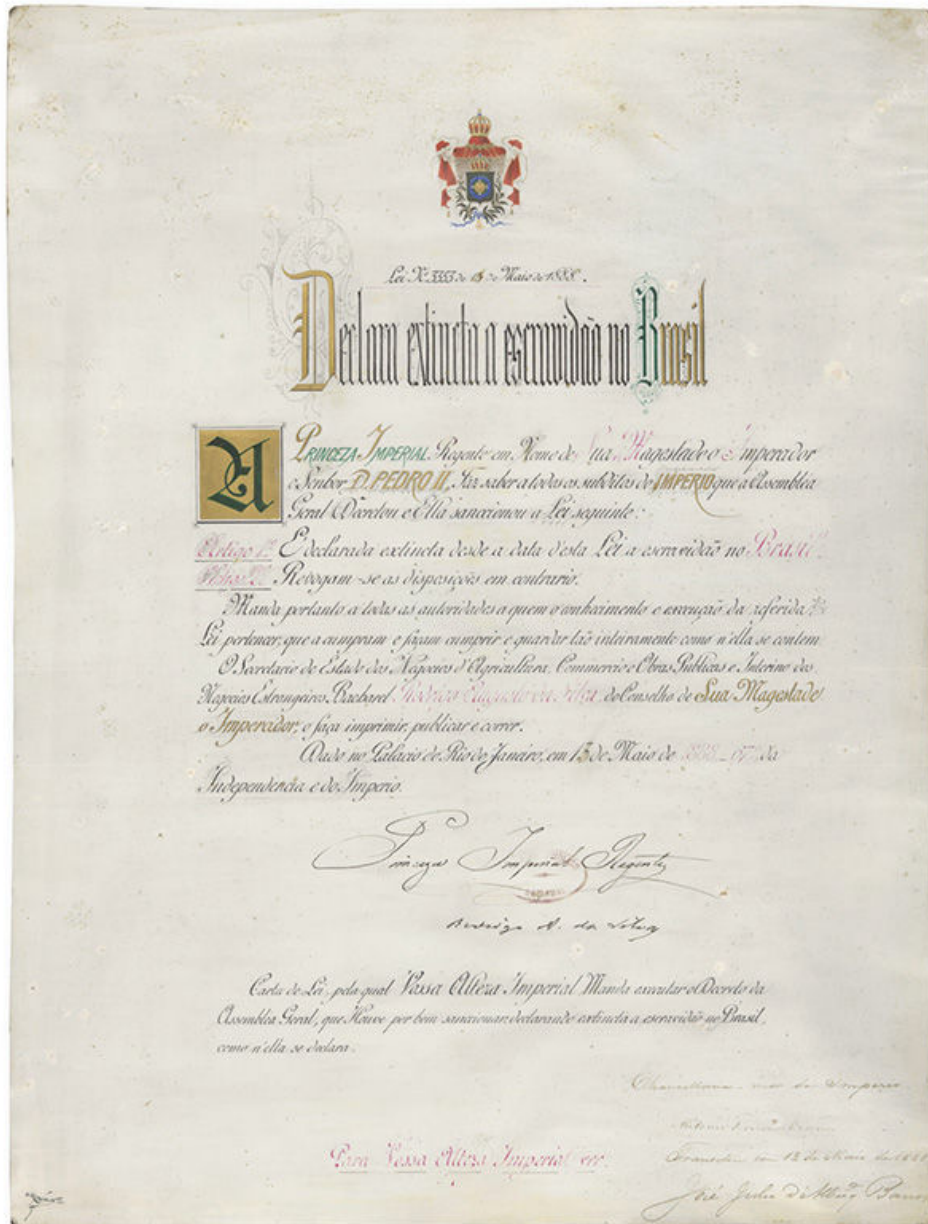 Lei Nº 3353 de 13 de Maio de 1888.
Declara extincta a escravidão no Brasil
A PRINCEZA IMPERIAL Regente em Nome de Sua Magestade o Imperador
o Senhor D. PEDRO II, Faz saber a todos os subditos do IMPERIO que a Assemblea
Geral Decretou e Ella sanccionou a Lei seguinte:
Artigo 1º É declarada extincta desde a data d'esta Lei a escravidão no Brasil.
Artigo 2º Revogam-se as disposições em contrario.
Manda portanto a todas as autoridades a quem o conhecimento e execução da referida
Lei pertencer, que a cumpram e façam cumprir e guardar tão inteiramente como n'ella se contem.
O Secretario de Estado dos Negocios d'Agricultura, Commercio e Obras Publicas e Interino dos
Negocios Estrangeiros, Bacharel Rodrigo Augusto da Silva, do Conselho de Sua Magestade
o Imperador, o faça imprimir, publicar e correr.
Dado no Palacio do Rio de Janeiro, em 13 de Maio de 1888 - 67º da
Independencia e do Imperio.
Princeza Imperial Regente
Rodrigo A. da Silva
Carta de Lei, pela qual Vossa Alteza Imperial Manda executar o Decreto da
Assemblea Geral, que Houve por bem sanccionar, declarando extincta a escravidão no Brasil,
como n'ella se declara.
Para Vossa Alteza Imperial ver.
Chancellaria-mór do Imperio
Transitou em 13 de Maio de 1888
José Julio d'Albuqᵉ Barros